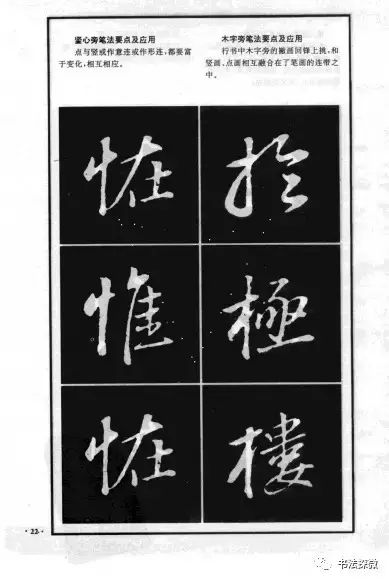 竖心旁笔法要点及应用
点与竖或作意连或作形连，都要富
于变化，相互相应。
木字旁笔法要点及应用
行书中木字旁的撇画回锋上挑，和
竖画、点画相互融合在了笔画的连带之
中。
恠
惟
極
恠
樓
·22·
书法探微